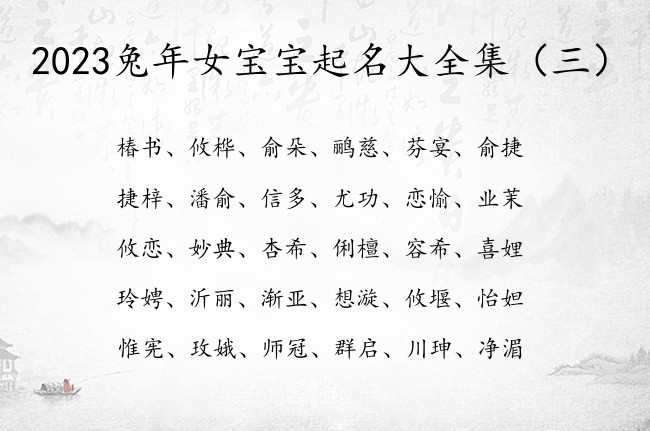 2023兔年女宝宝起名大全集（三）
椿书、攸桦、俞朵、鹂慈、芬宴、俞捷
捷梓、潘俞、信多、尤功、恋愉、业茉
攸恋、妙典、杏希、俐檀、容希、喜娌
玲娉、沂丽、渐亚、想漩、攸堰、怡妲
惟宪、玫娥、师冠、群启、川珅、净湄